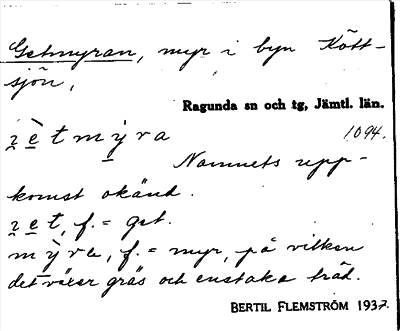 Getmyran, myr i byn Kött-
sjön,
Ragunda sn och tg, Jämtl. län.
ʒètmy̌ra 1094.
Namnets upp-
komst okänd.
ʒet, f. = get.
mỳra, f. = myr, på vilken
det växer gräs och enstaka träd.
BERTIL FLEMSTRÖM 1937.